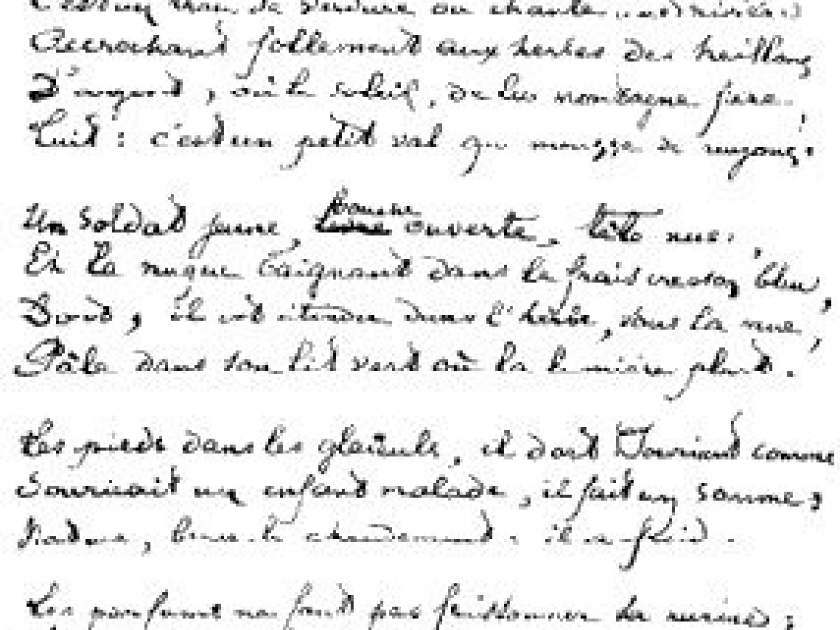 C'est un trou de verdure où chante une rivière
Accrochant follement aux herbes des haillons
D'argent, où le soleil, de la montagne fière,
Luit : c'est un petit val qui mousse de rayons.
Un soldat jeune, bouche ouverte, tête nue,
Et la nuque baignant dans le frais cresson bleu,
Dort ; il est étendu dans l'herbe, sous la nue,
Pâle dans son lit vert où la lumière pleut.
Les pieds dans les glaïeuls, il dort. Souriant comme
Sourirait un enfant malade, il fait un somme ;
Nature, berce-le chaudement : il a froid.
Les parfums ne font pas frissonner sa narine ;